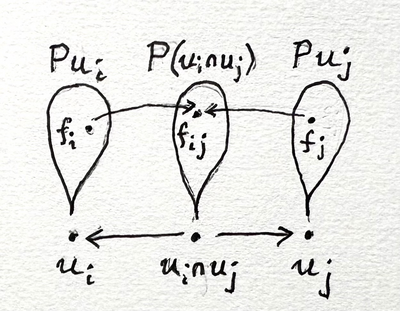 Pu_i P(u_i∩u_j) Pu_j
f_i f_ij f_j
u_i u_i∩u_j u_j